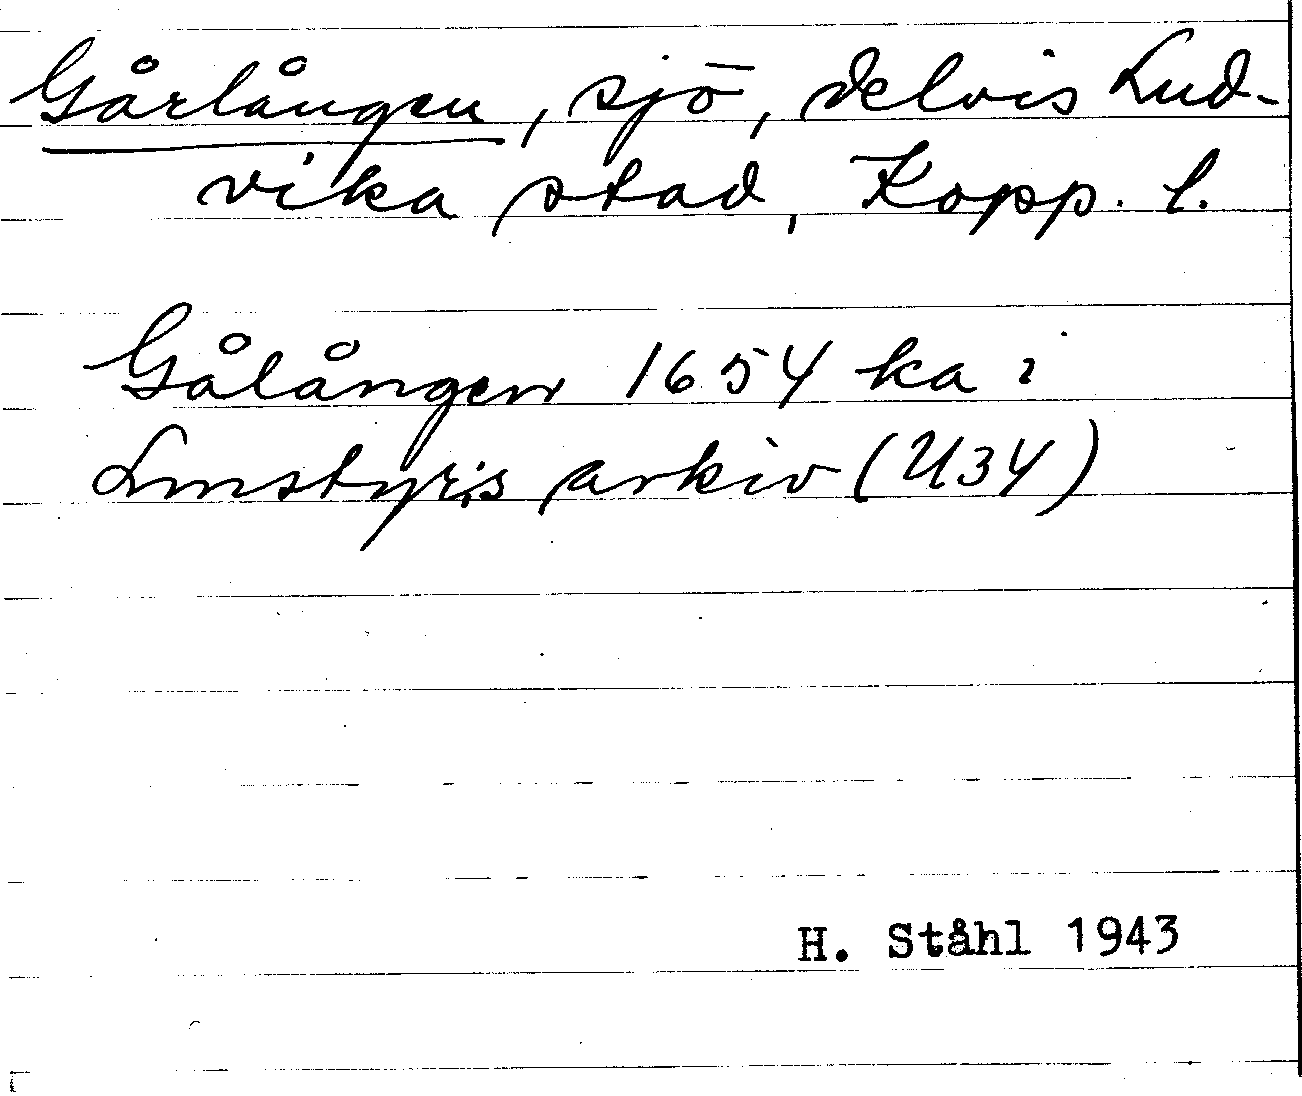 Gårlången, sjö, delvis Lud-
vika stad, Kopp. l.
Gålången 1654 ka i
Lmstyr:s arkiv (U34)
H. Ståhl 1943